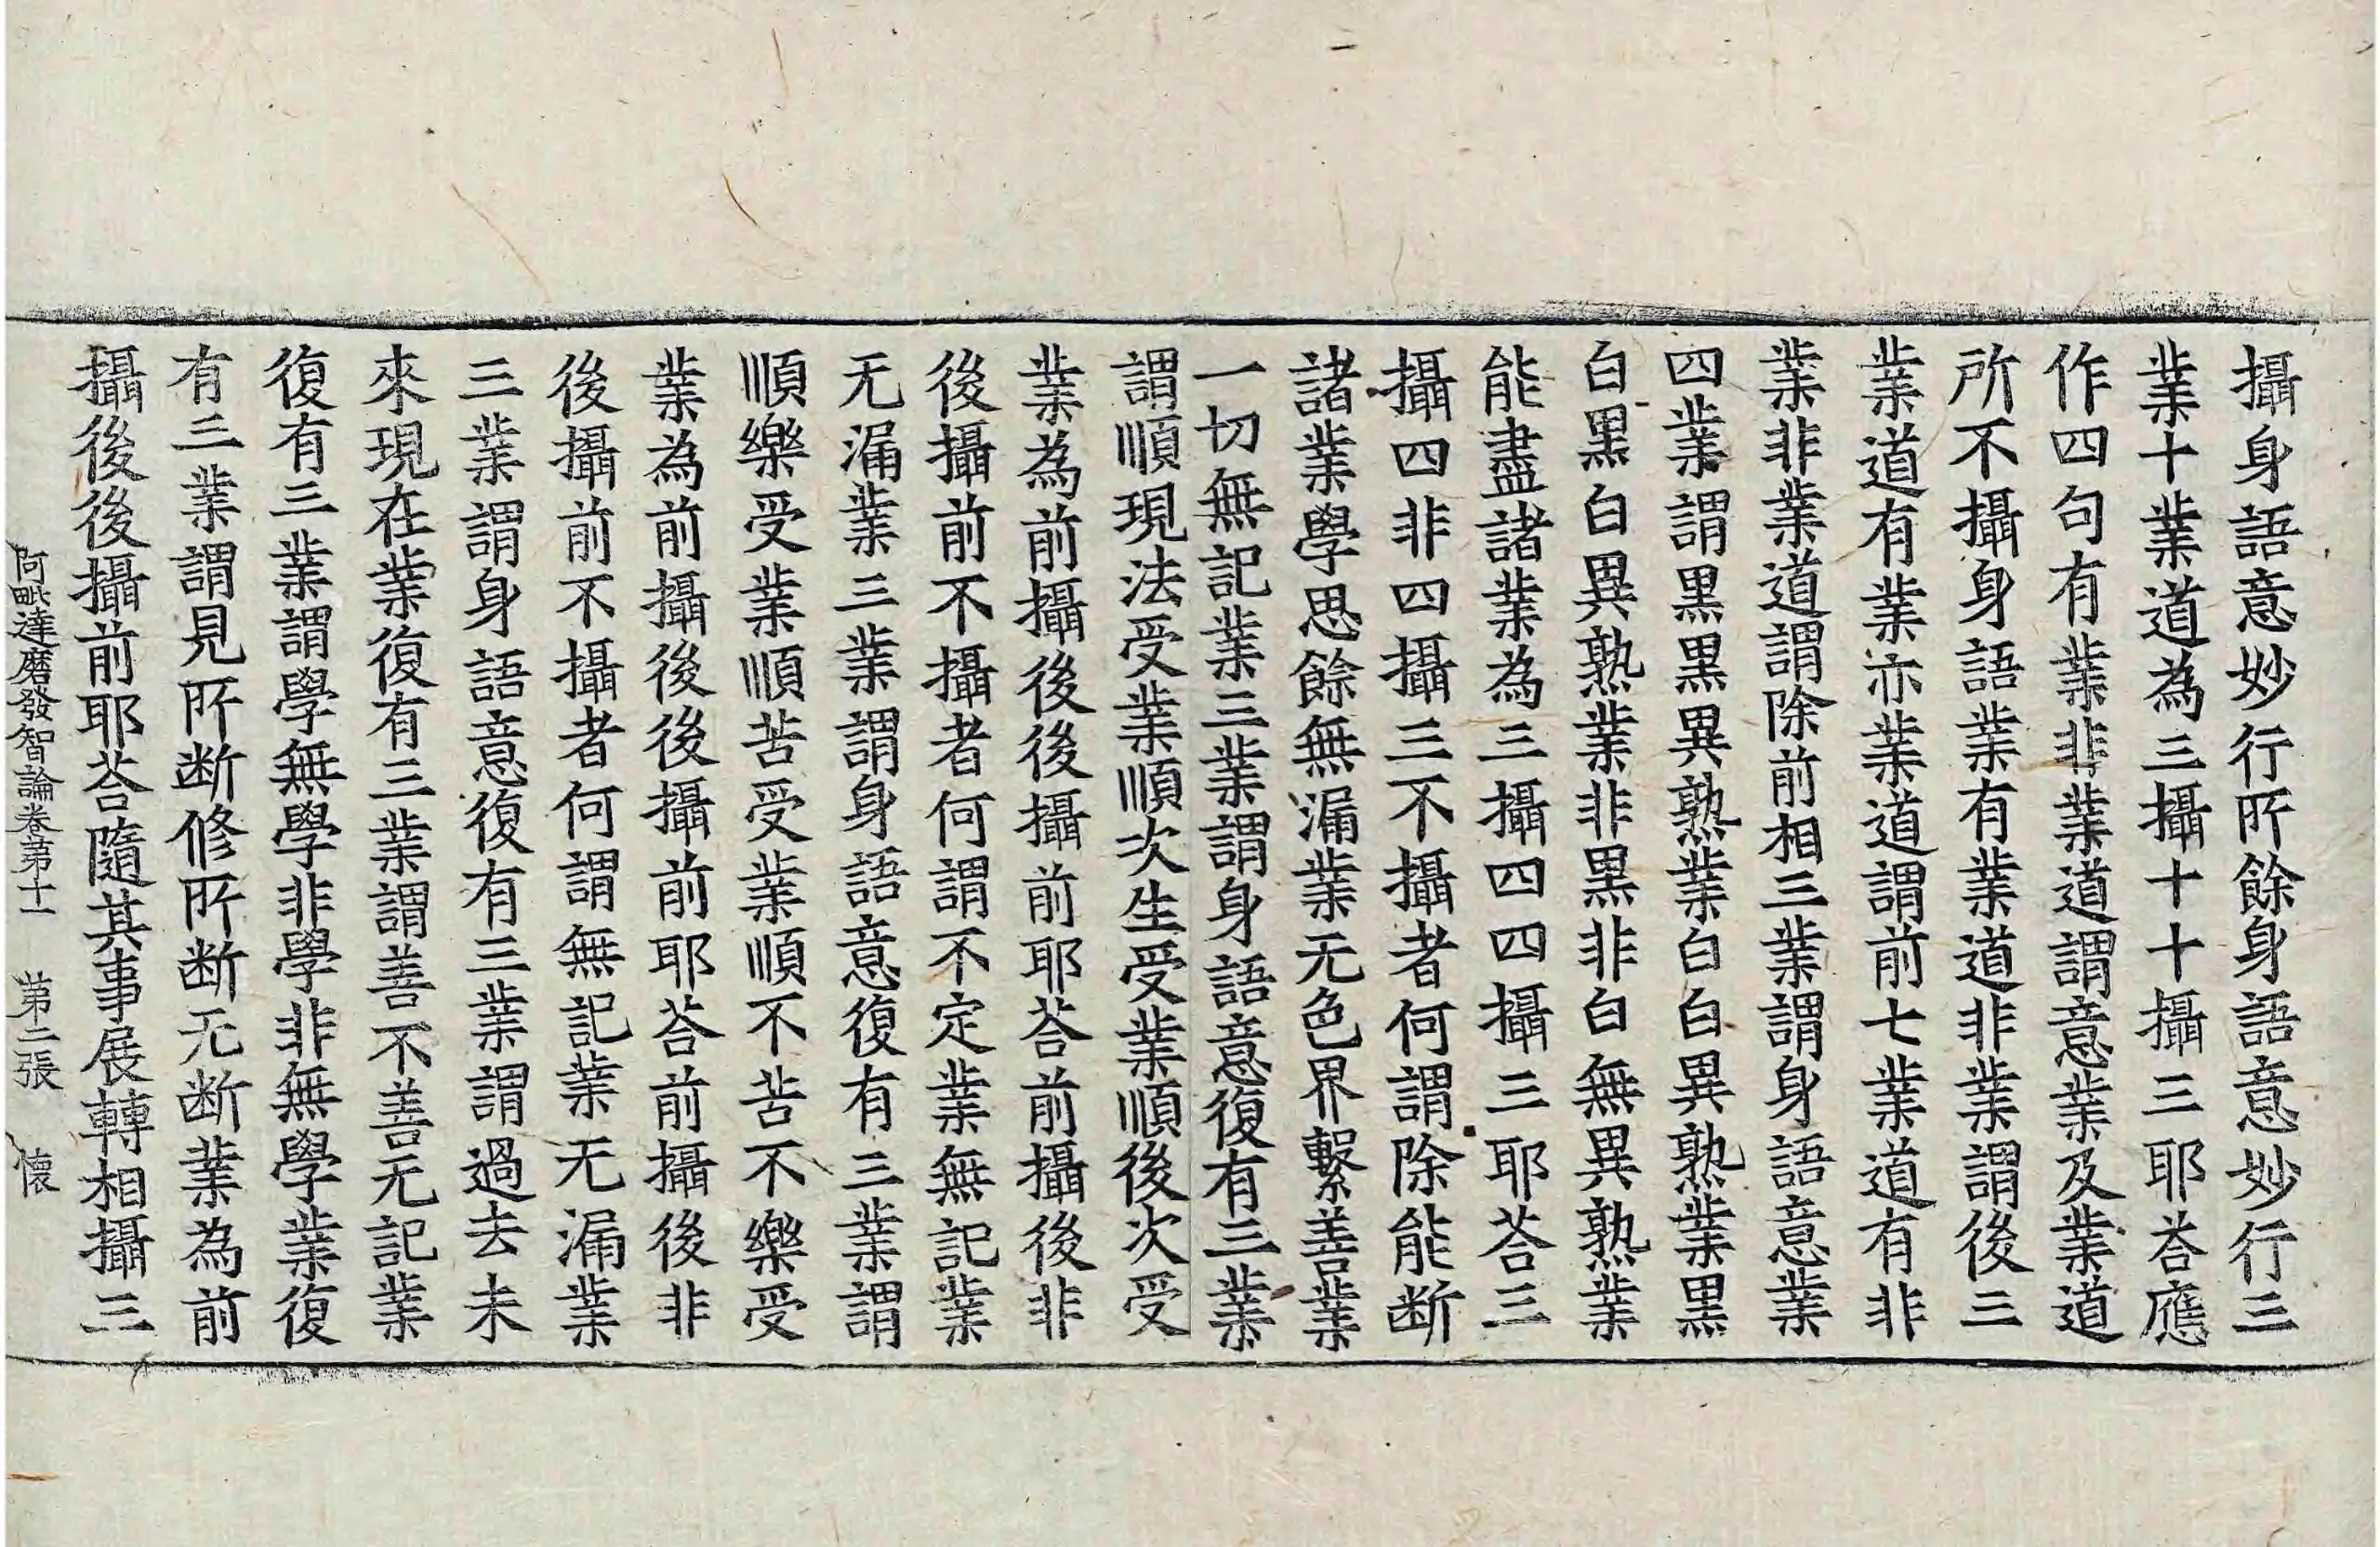 攝身語意妙行所餘身語意妙行三
業十業道為三攝十十攝三耶荅應
作四句有業非業道謂意業及業道
所不攝身語業有業道非業謂後三
業道有業亦業道謂前七業道有非
業非業道謂除前相三業謂身語意業
四業謂黒黒異熟業白白異熟業黒
白黒白異熟業非黒非白無異熟業
能盡諸業為三攝四四攝三耶荅三
攝四非四攝三不攝者何謂除能断
諸業學思餘無漏業无色界繫善業
一切無記業三業謂身語意復有三業
謂順現法受業順次生受業順後次受
業為前攝後後攝前耶荅前攝後非
後攝前不攝者何謂不定業無記業
无漏業三業謂身語意復有三業謂
順樂受業順苦受業順不苦不樂受
業為前攝後後攝前耶荅前攝後非
後攝前不攝者何謂無記業无漏業
三業謂身語意復有三業謂過去未
來現在業復有三業謂善不善无記業
復有三業謂學無學非學非無學業復
有三業謂見所断修所断无断業為前
攝後後攝前耶荅隨其事展轉相攝三
阿毗達磨發智論卷第十一 第二張 懐